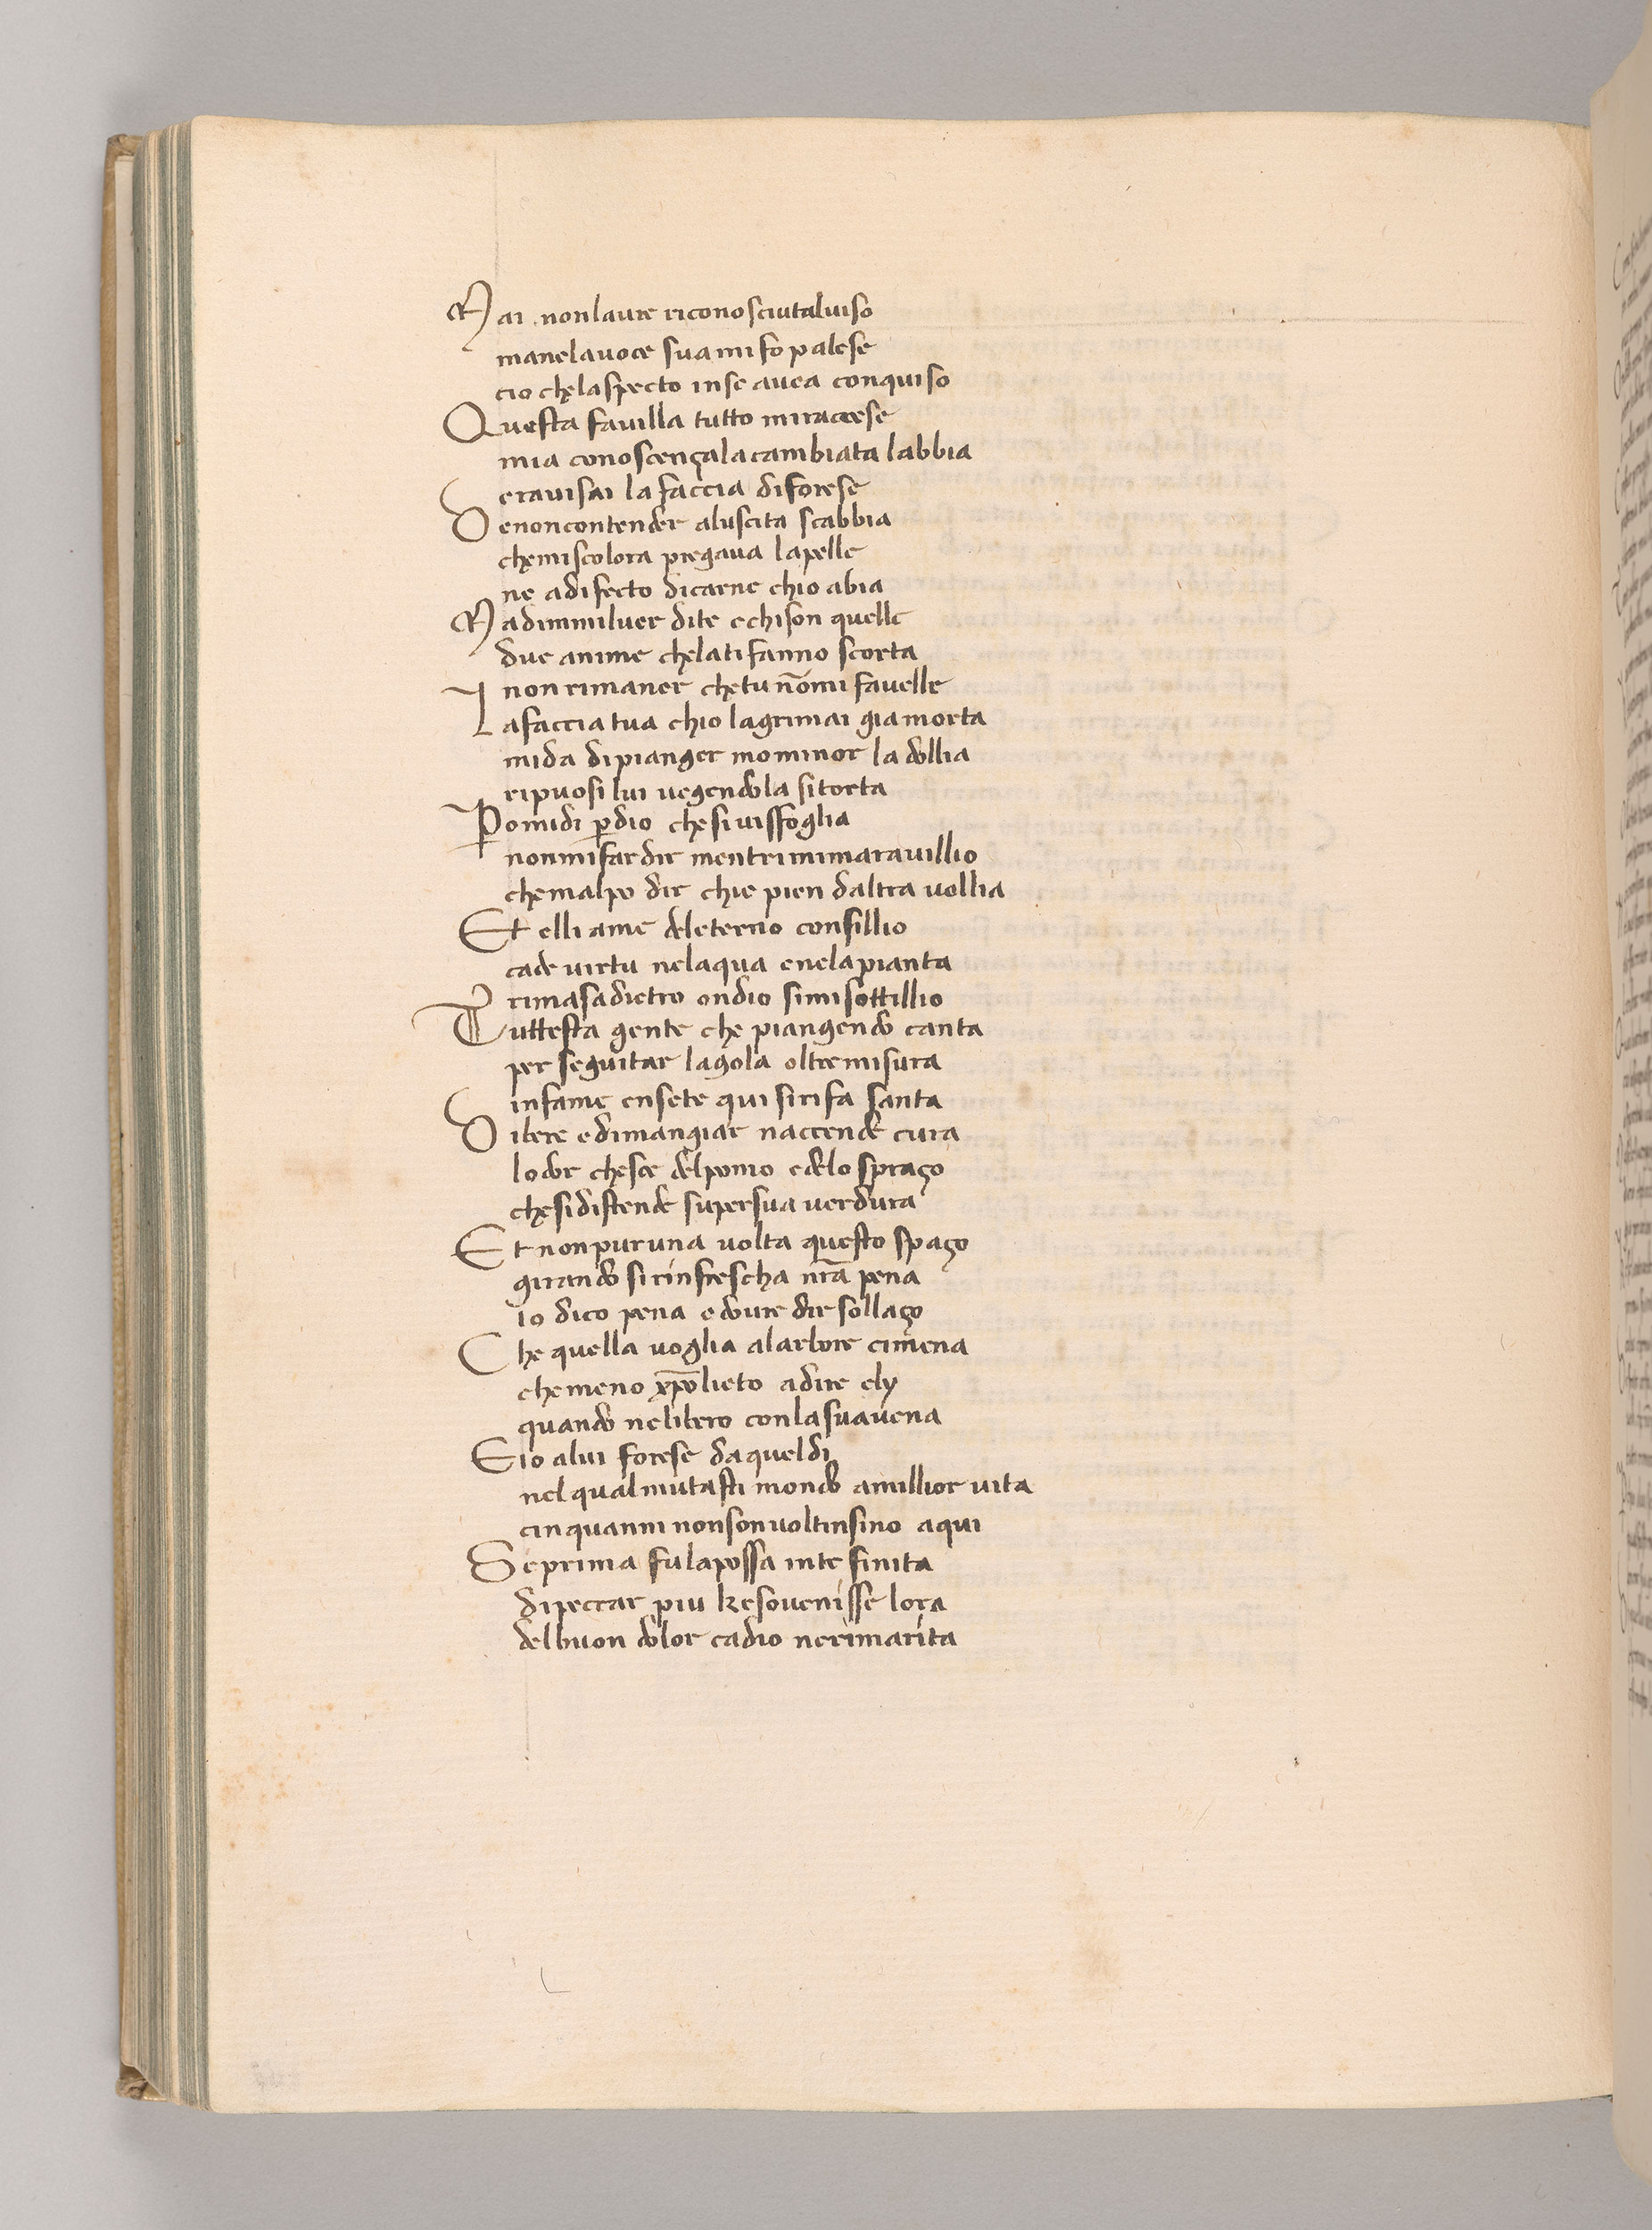 Mai nonlaure riconosciutalviso
manelavoce sua mi fo palese
cio chelaspecto inse avea conquiso
Questa favilla tutto miraccese
mia conoscença la cambiata labbia
eravisai la faccia di forese
De non contender aluscita scabbia
chemiscolora pregava lapelle
ne adifecto dicarne chio abia
Ma dimmiluer dite echison quelle
due anime chelati fanno scorta
non rimaner chetu nōmi favelle
La faccia tua chio lagrimai gia morta
mida dipianger mo minor la dollia
ripuosi lui vegendola si torta
Pomidi ꝑdio che si vissfoglia
nonmifardir mentrimimaravillio
chemalpo dir chie pien daltra vollia
Et elli ame deleterno consillio
cade virtu nelaqua enela pianta
rimasadietro ondio simisottillio
Tuttesta gente che piangendo canta
per seguitar lagola oltremisura
infame ensete qui sirifa santa
Dibere edimangiar naccende cura
lodor chesce delpomo edelo spraço
chesidistende supersua verdura
Et nonpur una volta questo spaço
girando sirinfrescha nr̄a pena
io dico pena edovre dir sollaço
Che quella voglia alarbore cimena
chemeno xp̄o lieto adire ely
quando nelibero conlasuavena
Eio alui forese daqueldi
nelqualmutasti mondo amillior vita
cinquanni nonsonvoltinsino aqui
Se prima fulapossa inte finita
dipeccar piu kesovenisse lora
delbuon dolor cadio nerimarita